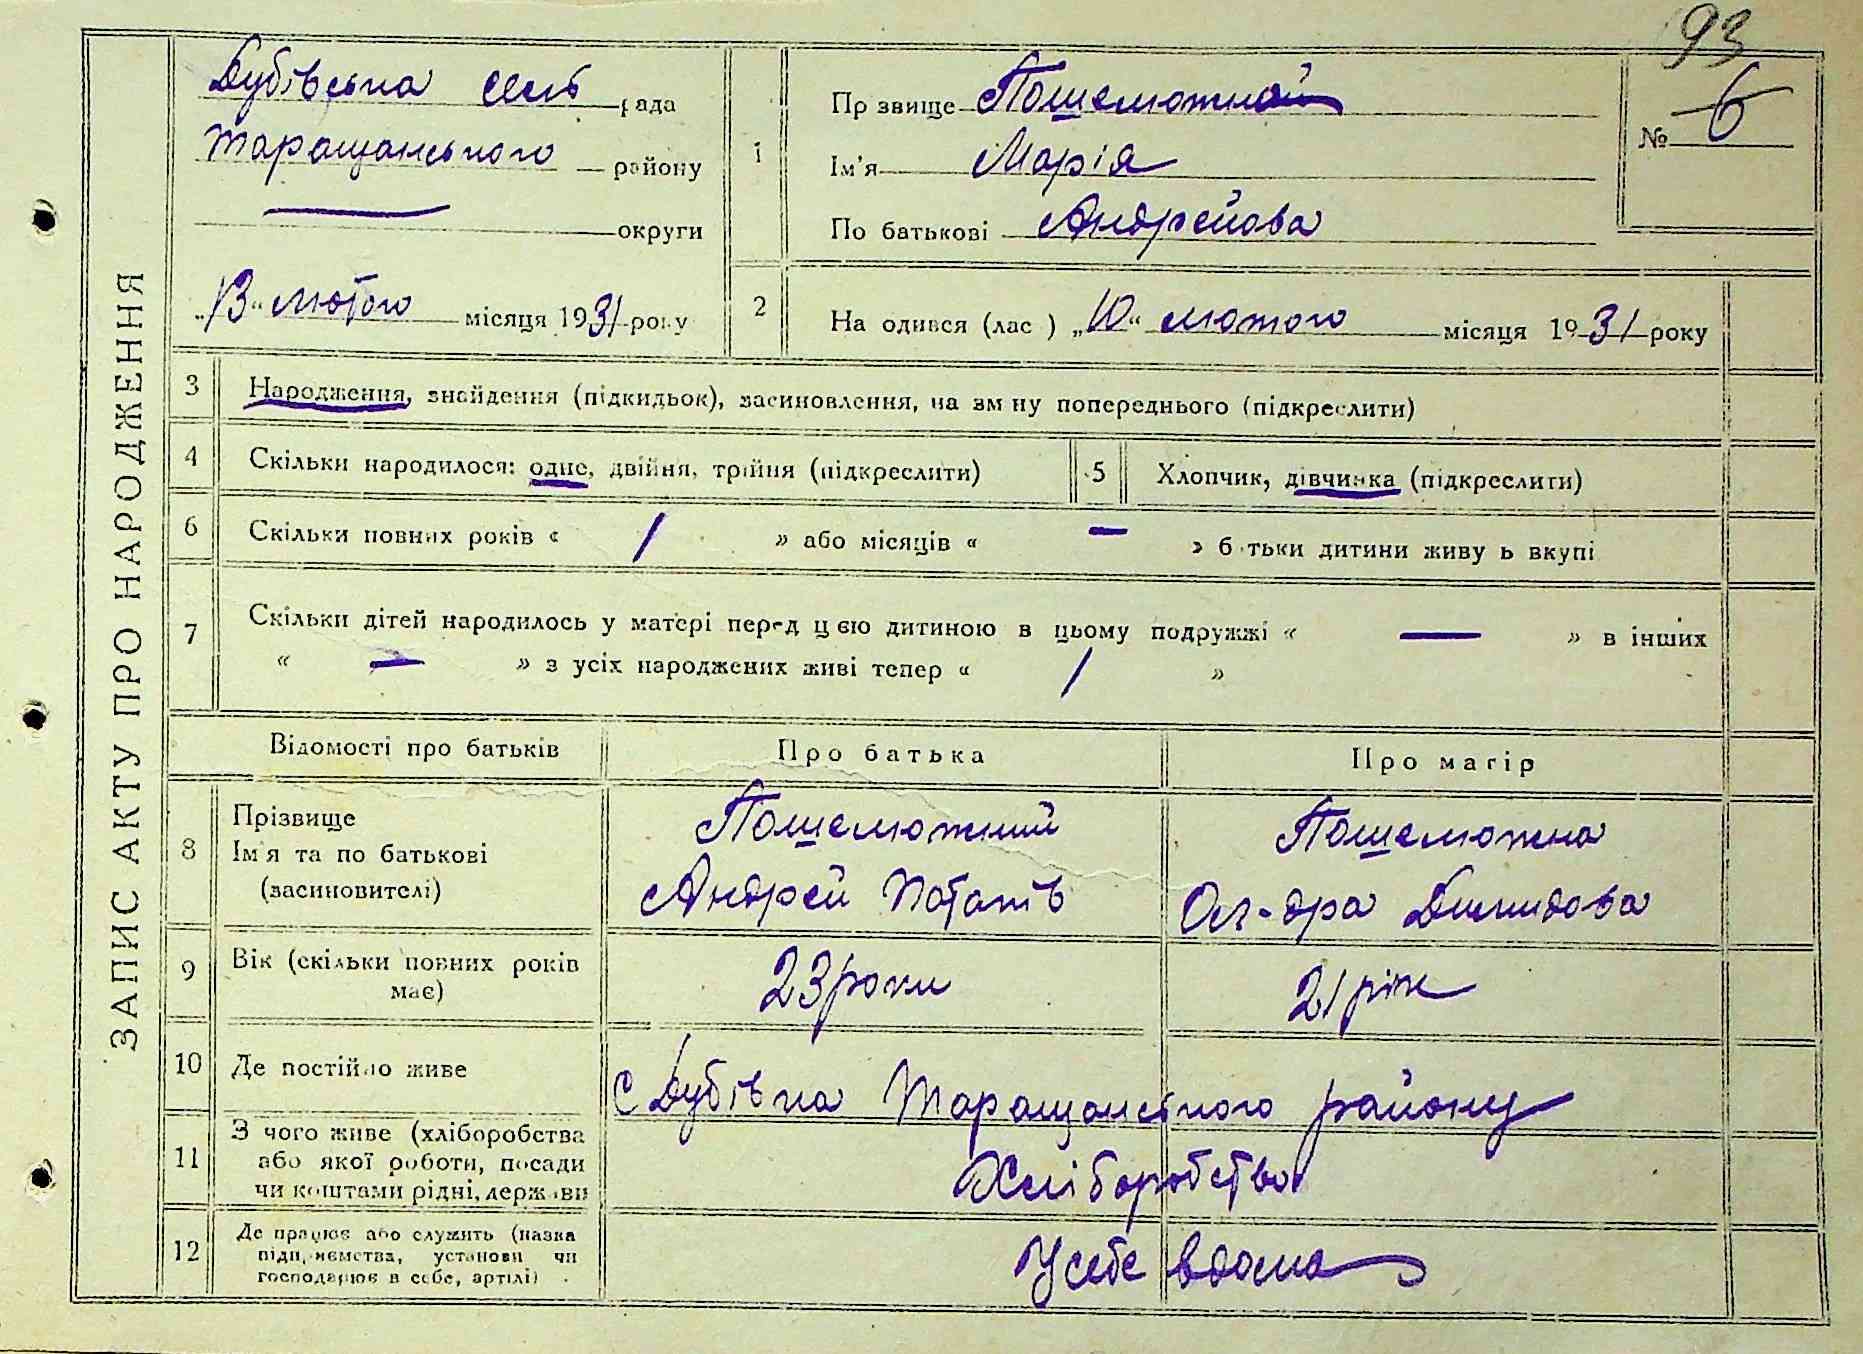 93
ЗАПИС АКТУ ПРО НАРОДЖЕННЯ
Дубівська сільр рада
Таращанського району
округи
"13" лютого місяця 1931 року
1
Пр звище Пошелюжной
Ім'я Марія
По батькові Андрейова
№ 6
2
На одився (лас ) „10" лютого місяця 1931 року
3 Народження, знайдення (підкидьок), засиновлення, на зм ну попереднього (підкреслити)
4 Скільки народилося: одне, двійня, трійня (підкреслити)
5 Хлопчик, дівчинка (підкреслити)
6 Скільки повних років « 1 » або місяців « — » б тьки дитини живу ь вкупі
7 Скільки дітей народилось у матері перед цією дитиною в цьому подружжі « — » в інших
« — » з усіх народжених живі тепер « 1 »
Відомості про батьків Про батька Про матір
8 Прізвище
Ім'я та по батькові
(засиновителі)
Пошелюжний
Андрей Потапів
Пошелюжна
Ол-дра Демидова
9 Вік (скільки повних років
має)
23 роки
21 рік
10 Де постійно живе
с Дубівка Таращанського району
11 З чого живе (хліборобства
або якої роботи, посади
чи коштами рідні, держ ви
Хліборобство
12 Де працює або служить (назка
підп, иємства, установи чи
господарює в себе, артілі)
У себе вдома